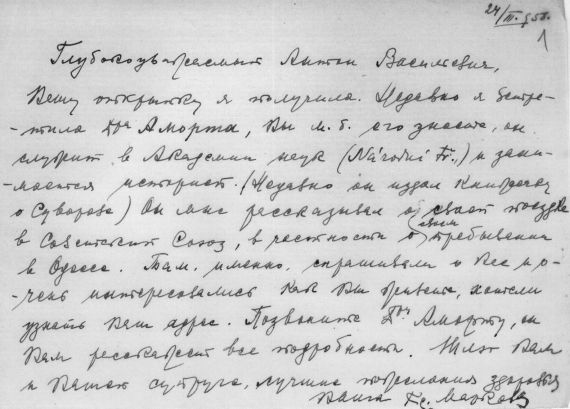 24/III. 958.
1
Глубокоуважаемый Антон Васильевич,
Вашу открытку я получила. Недавно я встре-
-тила Дра Аморта, Вы м. б. его знаете, он
служит в Академии наук (Národní Tř.) и зани-
-мается историей. (Недавно он издал книжечку
о Суворове) Он мне рассказывал о своей поездке
в Советский Союз, в частности о своем пребывании
в Одессе. Там, именно, спрашивали о Вас и о-
-чень интересовались как Вы живете, хотели
узнать Ваш адрес. Позвоните Дру Аморту, он
Вам расскажет все подробности. Шлю Вам
и Вашей супруге, лучшие пожелания здоровья
Ваша Маркова